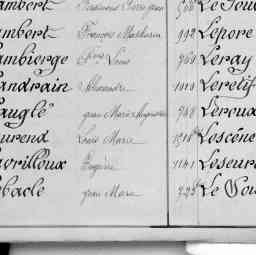 ambert Ferdinand Pierre Jean Le Sou
ambert François Mathurin 992 Lepore
ambierge Louis 960 Leray
andrain Alexandre 1010 Leretif
auglé Jean Marie Augustin 748 Leroux
aurend Louis Marie Lescène
avrilloux Eugène 1141 Leseur
ebacle Jean Marie 225 Le Sou